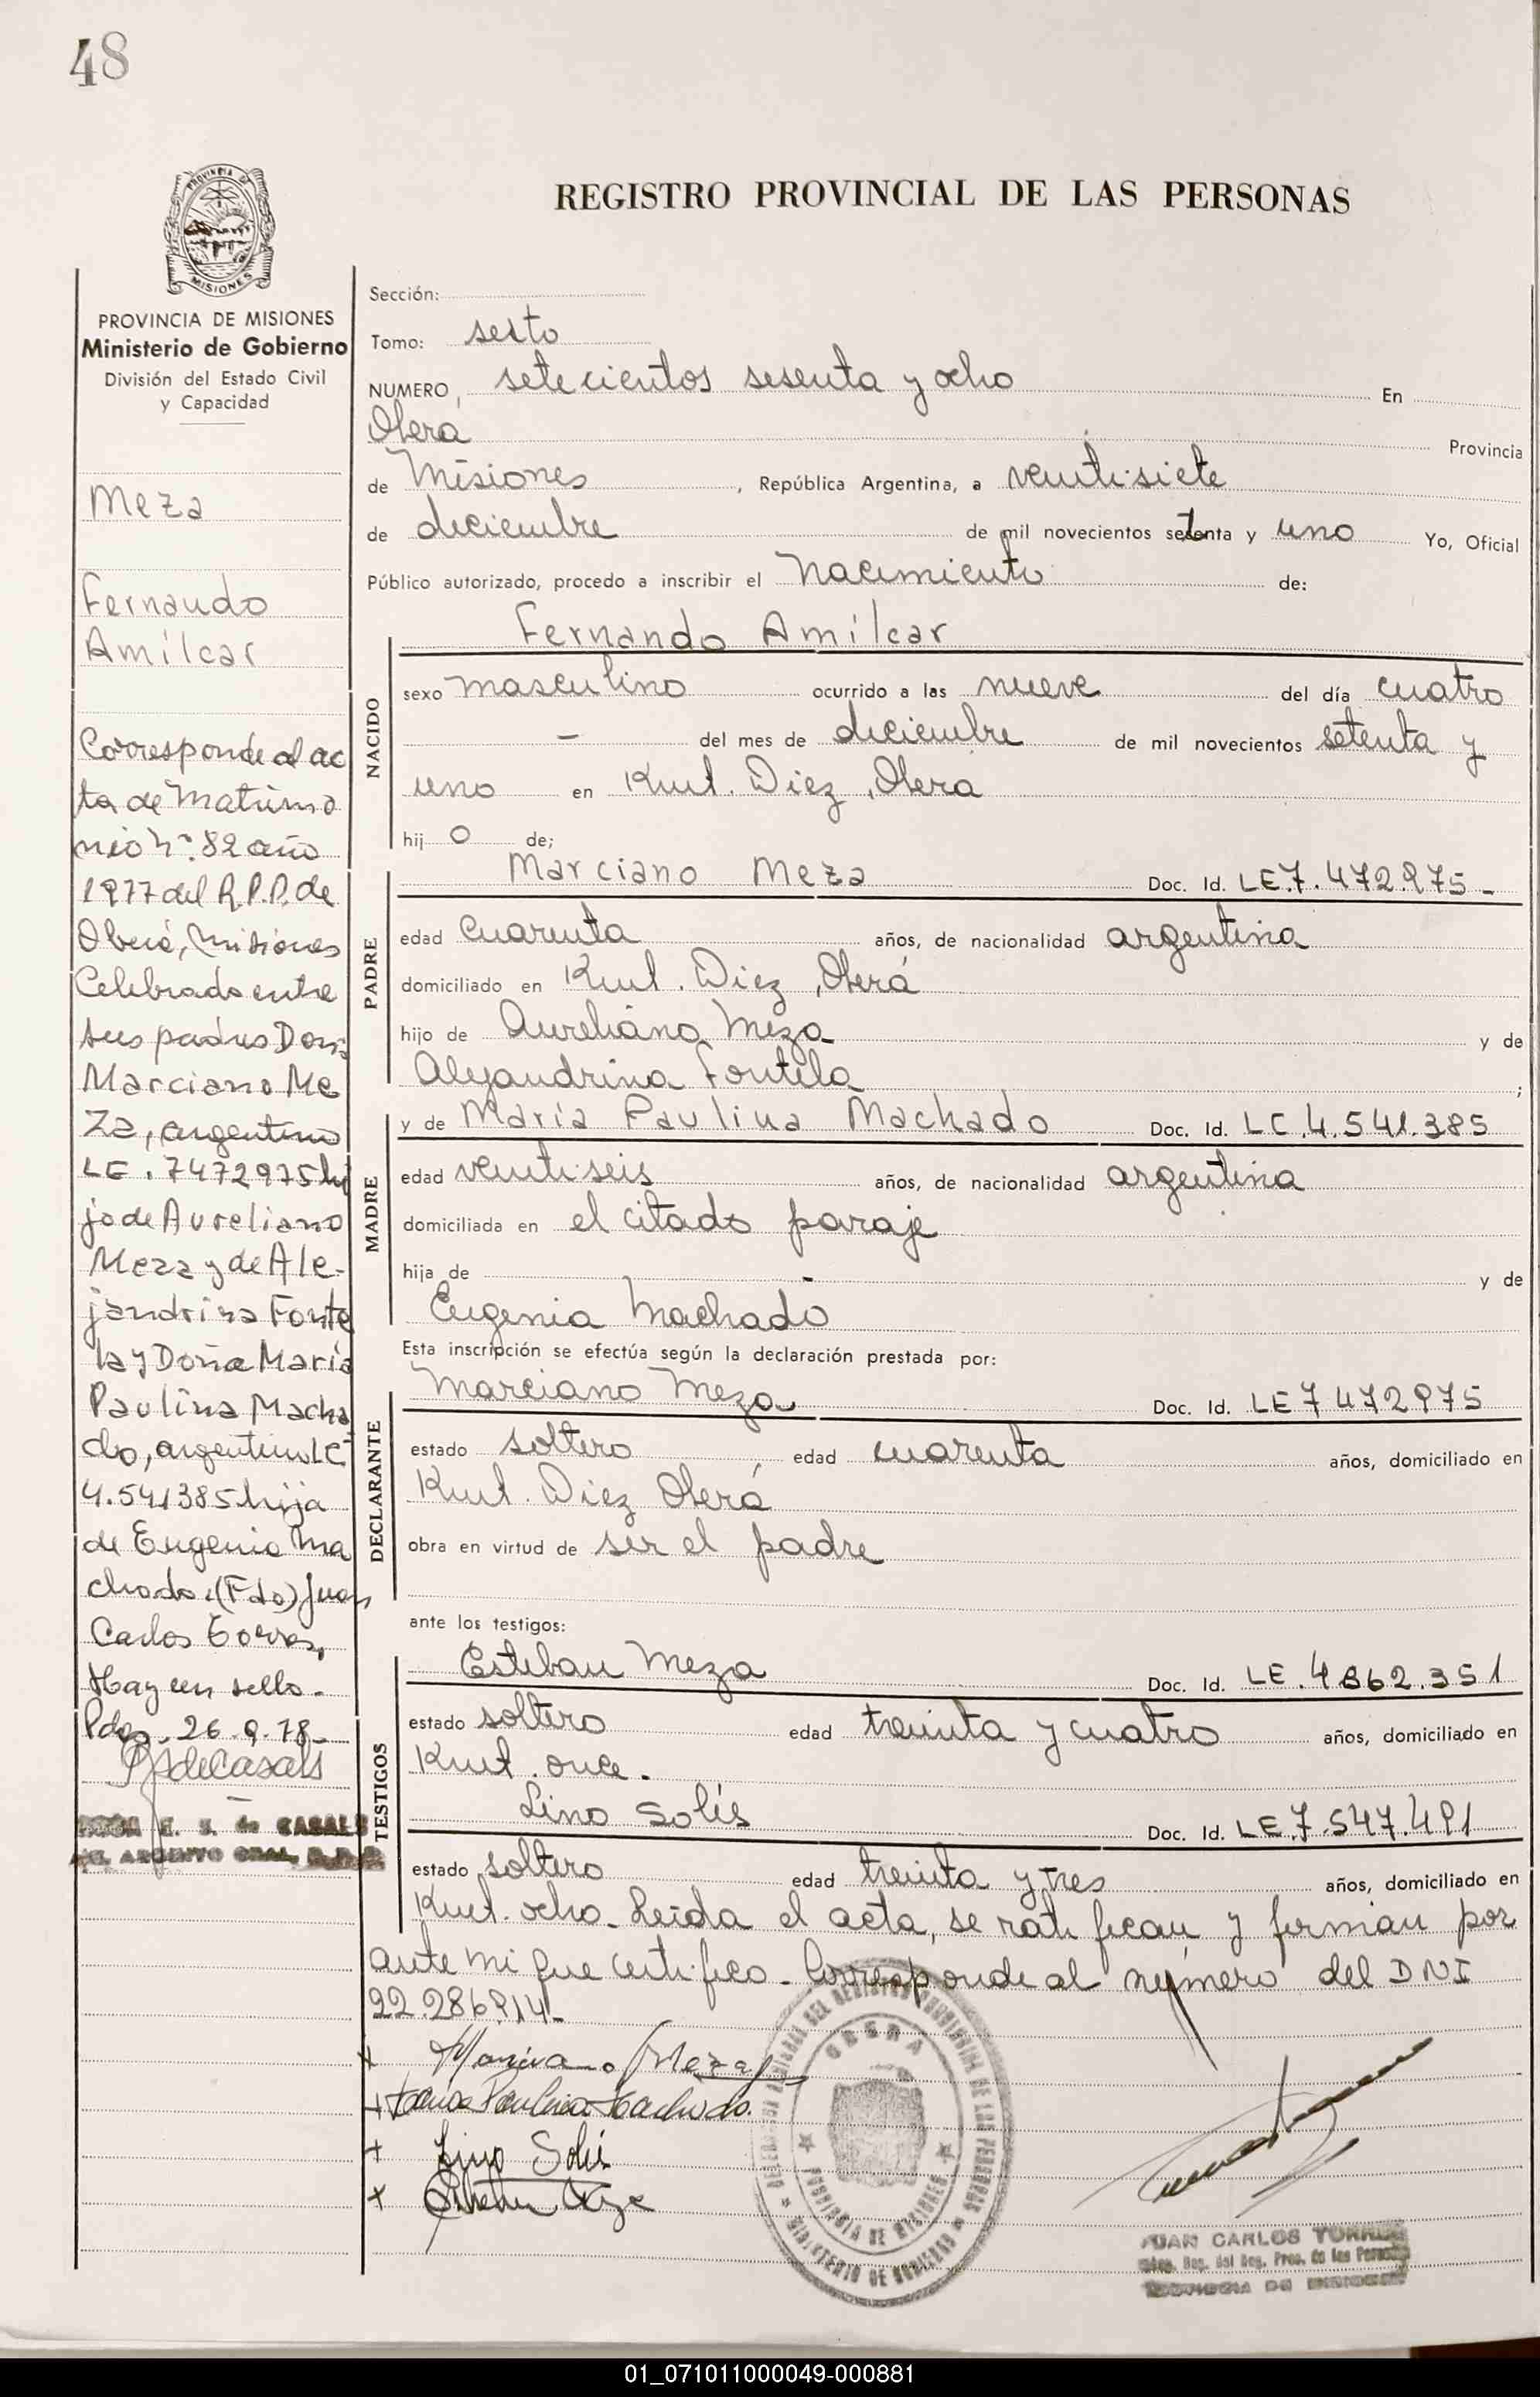 48
REGISTRO PROVINCIAL DE LAS PERSONAS
PROVINCIA DE
MISIONES
PROVINCIA DE MISIONES
Ministerio de Gobierno
División del Estado Civil
y Capacidad
Meza
Fernando
Amílcar
Corresponde al ac
ta de Matrimo
nio Nº. 82 año
1977 del R.P.P. de
Oberá, Misiones
Celebrado entre
sus padres Don
Marciano Me
za, argentino
LE. 7472975 hi
jo de Aureliano
Meza y de Ale-
jandrina Fonte
la y Doña María
Paulina Macha
do, argentina LC
4.541385 hija
de Eugenia Ma
chado. (Fdo) Juan
Carlos Torres,
Hay un sello.-
Pdas. 26.9.78-
E. S. de CASALS
Sección:
Tomo: sexto
NUMERO, setecientos sesenta y ocho En
Oberá Provincia
de Misiones, República Argentina, a veintisiete
de diciembre de mil novecientos setenta y uno Yo, Oficial
Público autorizado, procedo a inscribir el Nacimiento de:
NACIDO
Fernando Amílcar
sexo masculino ocurrido a las nueve del día cuatro
- del mes de diciembre de mil novecientos setenta y
uno en Kmt. Diez, Oberá
hij o de;
PADRE
Marciano Meza Doc. Id. LE.7.472.975-
edad cuarenta años, de nacionalidad argentina
domiciliado en Kmt. Diez, Oberá
hijo de Aureliano Meza y de
Alejandrina Fontela ;
MADRE
y de María Paulina Machado Doc. Id. LC.4.541.385
edad veintiseis años, de nacionalidad argentina
domiciliada en el citado paraje
hija de - y de
Eugenia Machado
Esta inscripción se efectúa según la declaración prestada por:
DECLARANTE
Marciano Meza Doc. Id. LE7472975
estado soltero edad cuarenta años, domiciliado en
Kmt. Diez Oberá
obra en virtud de ser el padre
ante los testigos:
TESTIGOS
Esteban Meza Doc. Id. LE.4862.351
estado soltero edad treinta y cuatro años, domiciliado en
Kmt. once.
Lino Solís Doc. Id. LE.7.547.491
estado soltero edad treinta y tres años, domiciliado en
Kmt. ocho. Leída el acta, se ratifican y firman por
ante mi que certifico. Corresponde al número del DNI
22.286914-
Marciano Meza
Paulina Machado.
Lino Solis
OBERA
PROVINCIA DE MISIONES
MINISTERIO DE GOBIERNO
JUAN CARLOS TORRES
PROVINCIA DE MISIONES
01_071011000049-000881